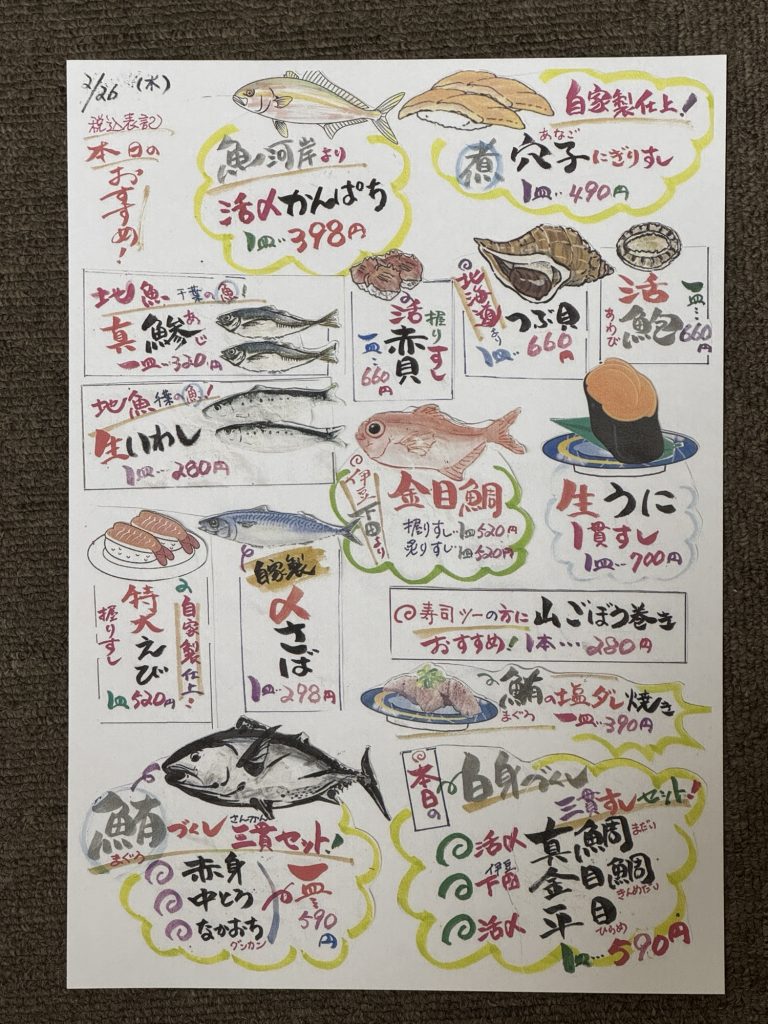 2/26 (水)
税込表記
本日の
おすすめ!
魚河岸より
活〆かんぱち
1皿‥398円
自家製仕上!
あなご
煮穴子にぎりすし
1皿‥490円
地魚 千葉の魚!
真鯵
あじ
一皿‥320円
握りすし
活赤貝
一皿‥660円
北海道より
つぶ貝
1皿‥660円
活鮑
あわび
一皿‥660円
地魚 千葉の魚!
生いわし
1皿‥280円
伊豆下田より
金目鯛
握りすし‥1皿520円
炙りすし‥1皿520円
生うに
1貫すし
1皿‥700円
自家製仕上!
特大えび
握りすし
1皿520円
自家製
〆さば
1皿‥298円
寿司ツーの方に 山ごぼう巻き
おすすめ! 1本‥‥280円
鮪の塩ダレ焼き
まぐろ
一皿‥390円
さんかん
鮪づくし三貫セット!
まぐろ
赤身
中とろ
なかおち
グンカン
一皿‥590円
本日の
白身づくし
三貫すしセット!
活〆 真鯛 まだい
伊豆
下田 金目鯛 きんめだい
活〆 平目 ひらめ
1皿‥590円